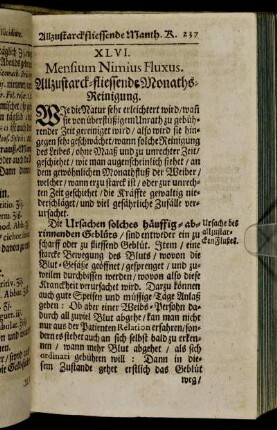 Allzustarck fliessende Manth. K. 237
XLVI.
Mensium Nimius Fluxus.
Allzustarck-fliessende Monaths-
Reinigung.
Wie die Natur sehr erleichtert wird/ wañ
sie von überflüssigem Unrath zu gebüh-
render Zeit gereiniget wird/ also wird sie hin-
gegen sehr geschwächet/ wann solche Reinigung
des Leibes/ ohne Maß und zu unrechter Zeit/
geschiehet/ wie man augenscheinlich siehet/ an
dem gewöhnlichen Monathfluß der Weiber/
welcher/ wann er zu starck ist/ oder zur unrech-
ten Zeit geschiehet/ die Kräffte gewaltig nie-
derschläget/ und viel gefährliche Zufälle ver-
ursachet.
Die Ursachen solches häuffig-ab-
rinnenden Geblüts/ sind entweder ein zu
scharff oder zu fliessend Geblüt. Item/ eine
starcke Bewegung des Bluts/ wovon die
Blut-Gefäße geöffnet/ gesprenget/ und zu-
weilen durchbissen werden/ wovon also diese
Kranckheit verursachet wird. Darzu können
auch gute Speisen und müssige Täge Anlaß
geben: Ob aber einer Weibs-Persohn da-
durch all zuviel Blut abgehe/ kan man nicht
nur aus der Patienten Relation erfahren/ son-
dern es stehet auch an sich selbst bald zu erken-
nen/ wann mehr Blut abgehet/ als sich
ordinari gebühren will: Dann in die-
sem Zustande gehet erstlich das Geblüt
weg/
Ursache des
allzustar-
cken Flusses.